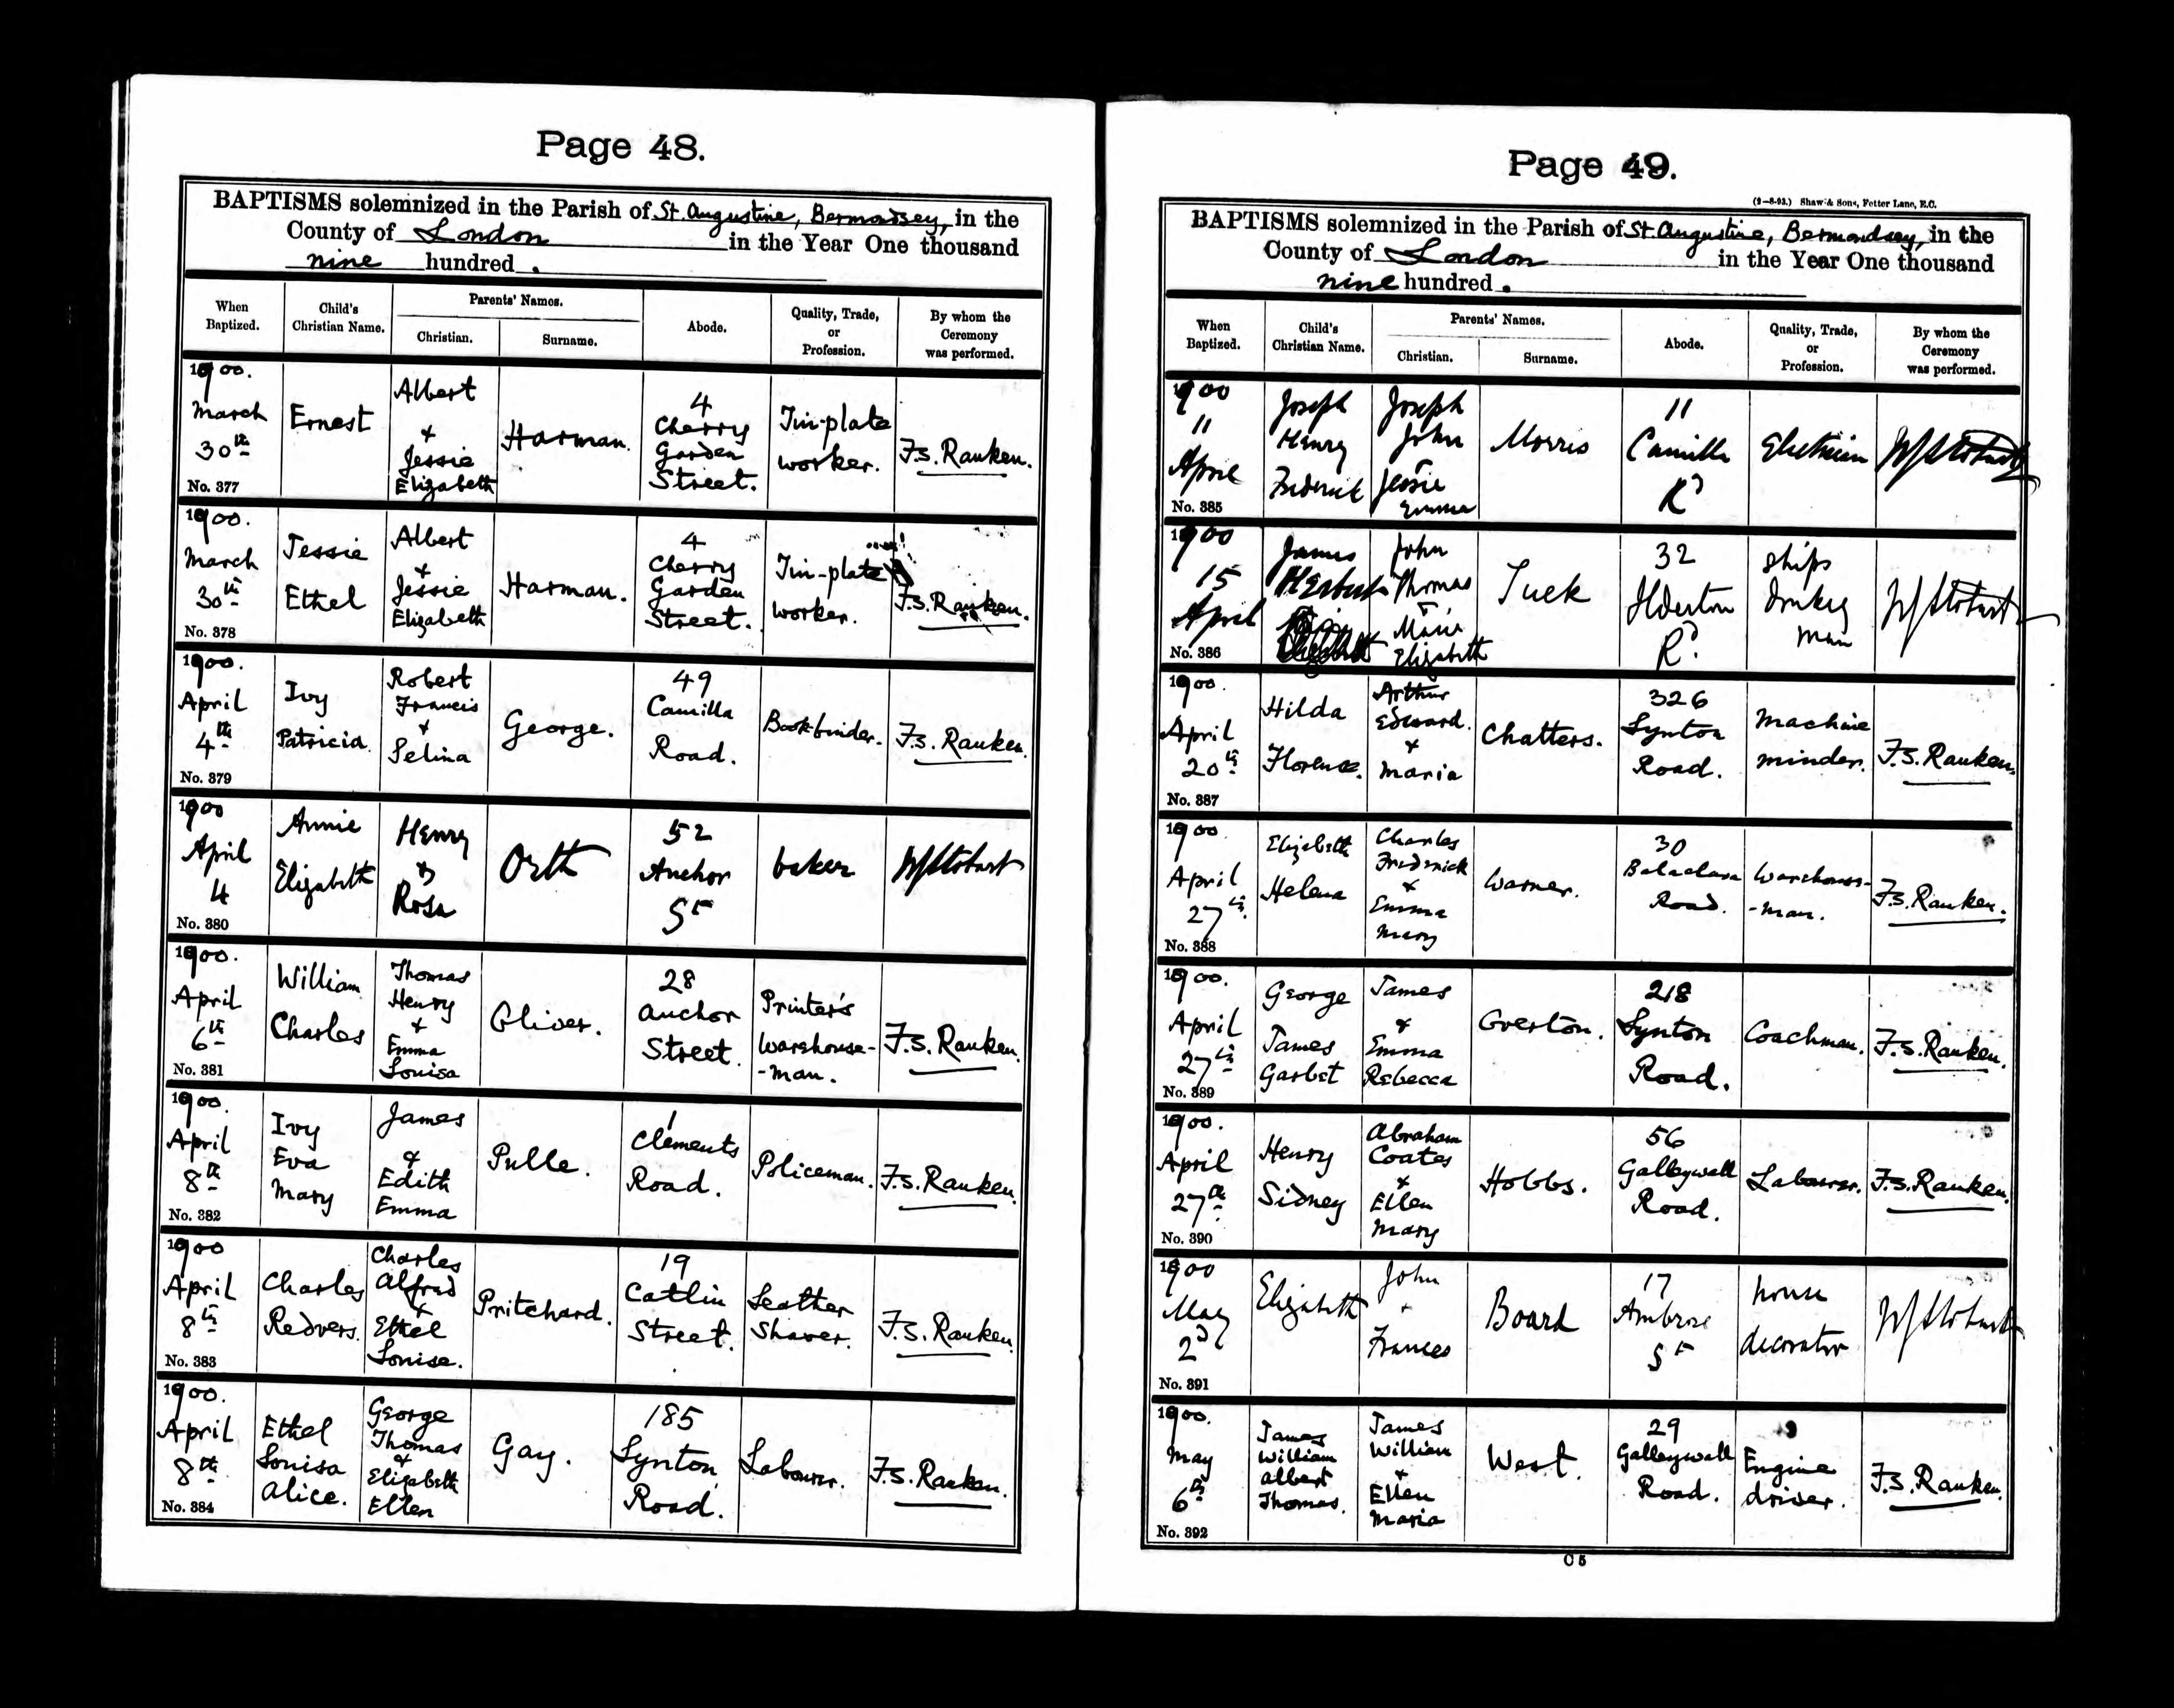 Page 48.
BAPTISMS solemnized in the Parish of St. Augustine, Bermondsey, in the
County of London in the Year One thousand
nine hundred .
When Baptized.
Child's Christian Name.
Parents' Names.
Christian.
Surname.
Abode.
Quality, Trade, or Profession.
By whom the Ceremony was performed.
1900.
March
30th
No. 377
Ernest
Albert
&
Jessie
Elizabeth
Harman.
4
Cherry
Garden
Street.
Tin-plate
worker.
F.S. Ranken.
1900.
March
30th
No. 378
Jessie
Ethel
Albert
&
Jessie
Elizabeth
Harman.
4
Cherry
Garden
Street.
Tin-plate
worker.
F.S. Ranken.
1900.
April
4th
No. 379
Ivy
Patricia
Robert
Francis
&
Selina
George.
49
Camilla
Road.
Bookbinder.
F.S. Ranken
1900
April
4
No. 380
Annie
Elizabeth
Henry
&
Rosa
Orth
52
Anchor
St
baker
1900.
April
6th
No. 381
William
Charles
Thomas
Henry
&
Emma
Louisa
Oliver.
28
Anchor
Street.
Printer's
Warehouse-
-man.
F.S. Ranken.
1900.
April
8th
No. 382
Ivy
Eva
Mary
James
&
Edith
Emma
Pulle.
1
Clements
Road.
Policeman.
F.S. Ranken.
1900
April
8th
No. 383
Charles
Redvers.
Charles
Alfred
&
Ethel
Louise.
Pritchard.
19
Catlin
Street.
Leather
Shaver.
F.S. Ranken.
1900.
April
8th
No. 384
Ethel
Louisa
Alice.
George
Thomas
&
Elizabeth
Ellen
Gay.
185
Lynton
Road.
Labourer.
F.S. Ranken.
Page 49.
(2–8-93.) Shaw & Sons, Fetter Lane, E.C.
BAPTISMS solemnized in the Parish of St. Augustine, Bermondsey, in the
County of London in the Year One thousand
nine hundred .
When Baptized.
Child's Christian Name.
Parents' Names.
Christian.
Surname.
Abode.
Quality, Trade, or Profession.
By whom the Ceremony was performed.
1900
11
April
No. 385
Joseph
Henry
Frederick
Joseph
John
&
Jessie
Emma
Morris
11
Camilla
Rd
Electrician
1900
15
April
No. 386
James
Herbert
John
Thomas
&
Marie
Elizabeth
Tuck
32
Ilderton
Rd.
Ships
donkey
man
1900.
April
20th
No. 387
Hilda
Florence.
Arthur
Edward.
&
Maria
Chatters.
326
Lynton
Road.
Machine
minder.
F.S. Ranken.
1900.
April
27th.
No. 388
Elizabeth
Helena
Charles
Frederick
&
Emma
Mary
Warner.
30
Balaclava
Road.
Warehouse-
-man.
F.S. Ranken.
1900.
April
27th
No. 389
George
James
Garbet
James
&
Emma
Rebecca
Overton.
218
Lynton
Road.
Coachman.
F.S. Ranken.
1900.
April
27th
No. 390
Henry
Sidney
Abraham
Coates
&
Ellen
Mary
Hobbs.
56
Galleywall
Road.
Labourer.
F.S. Ranken.
1900
May
2d
No. 391
Elizabeth
John
+
Frances
Board
17
Ambrose
St
house
decorator
1900.
May
6th
No. 392
James
William
Albert
Thomas.
James
William
&
Ellen
Maria
West.
29
Galleywall
Road.
Engine
driver.
F.S. Ranken.
C 5